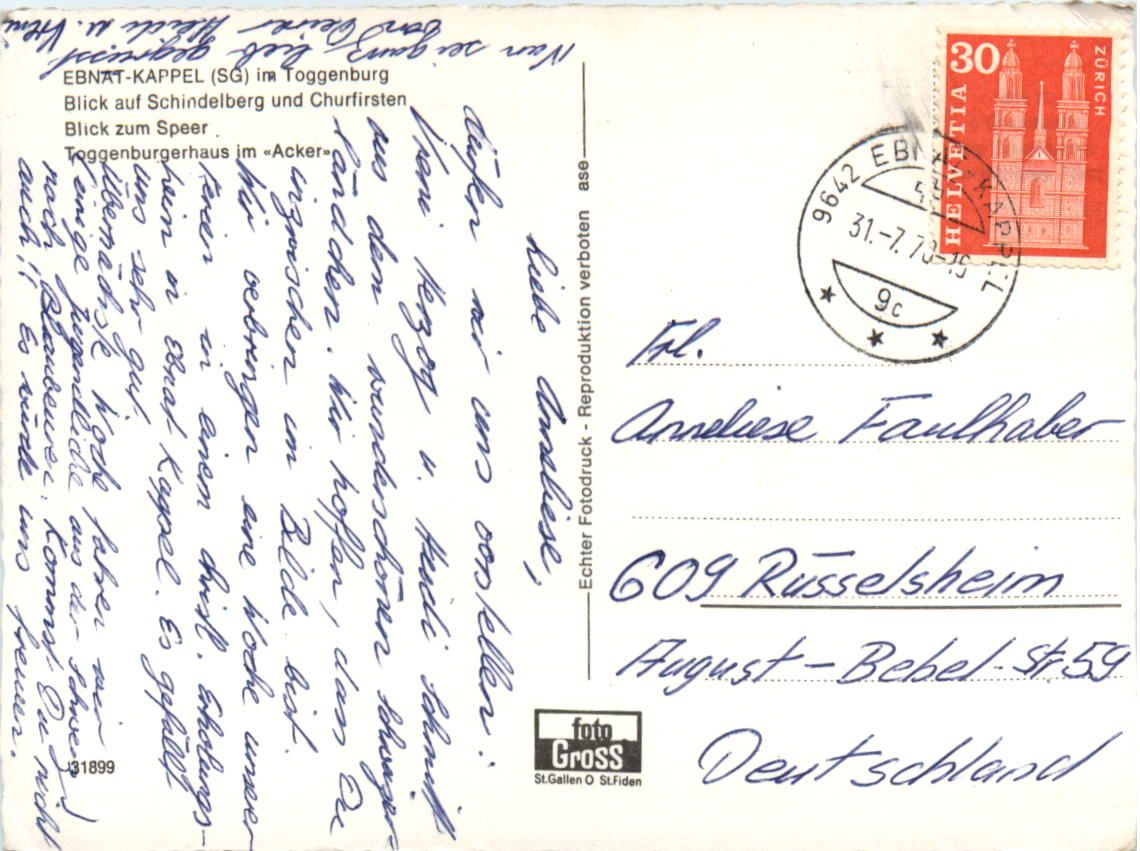 EBNAT-KAPPEL (SG) im Toggenburg
Blick auf Schindelberg und Churfirsten
Blick zum Speer
Toggenburgerhaus im «Acker»
Liebe Anneliese,
dürfen wir uns vorstellen:
Vreni Herzog u. Heidi Schmid
aus dem wunderschönen Schwyzer-
ländchen. Wir hoffen, dass Du
inzwischen im Bilde bist.
Wir verbringen eine Woche unserer
Ferien in einem christl. Erholungs-
heim in Ebnat Kappel. Es gefällt
uns sehr gut.
Übernächste Woche fahren wir
(einige Jugendliche aus der Schweiz)
nach Blaubeuren. Kommst Du nicht
auch?? Es würde uns freuen.
Nun sei ganz lieb gegrüsst
von Deiner Heidi u. Vreni
31899
Echter Fotodruck - Reproduktion verboten ase
foto
Gross
St.Gallen O St.Fiden
30
HELVETIA
ZÜRICH
9642 EBNAT-KAPPEL
31.-7.70-15
9c
Frl.
Anneliese Faulhaber
609 Rüsselsheim
August-Bebel-Str. 59
Deutschland